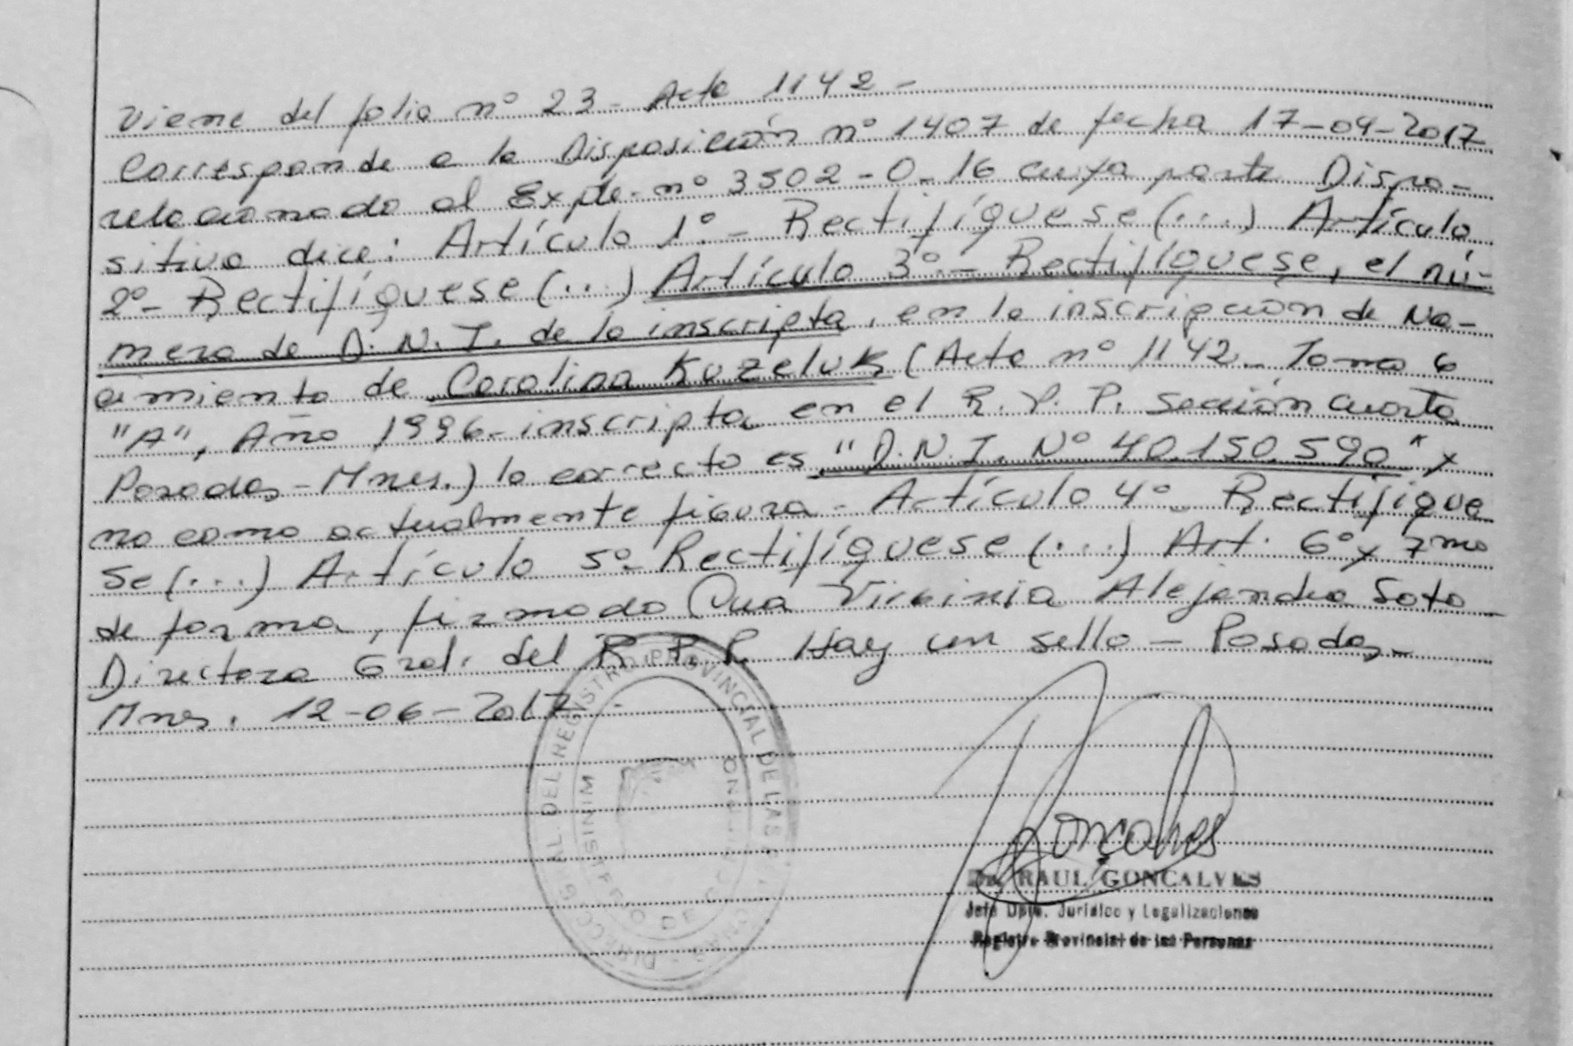 Viene del folio nº 23 - Acta 1142 -
Corresponde a la Disposición nº 1407 de fecha 17-04-2017
relacionado al Expte. nº 3502-0-16 cuya parte Dispo-
sitiva dice: Artículo 1º.- Rectifíquese (...) Artículo
2º- Rectifíquese (...) Artículo 3º- Rectifíquese, el nú-
mero de D.N.I. de la inscripta, en la inscripción de Na-
cimiento de Carolina Kuzeluk (Acta nº 1142 - Tomo 6
"A", Año 1996 - inscripta en el R.P.P. sección cuarta
Posadas - Mnes.) lo correcto es "D.N.I. Nº 40.150.590" y
no como actualmente figura - Artículo 4º- Rectifíque
se (...) Artículo 5º- Rectifíquese (...) Art. 6º y 7mo
de forma, firmado Virginia Alejandra Soto
Directora Gral. del R.P.P. Hay un sello - Posadas -
Mnes. 12-06-2017 -
DEL REGISTRO PROVINCIAL DE LAS
MINISTERIO DE
Goncalves
Dr. RAUL GONCALVES
Jefe Dpto. Jurídico y Legalizaciones
Registro Provincial de las Personas